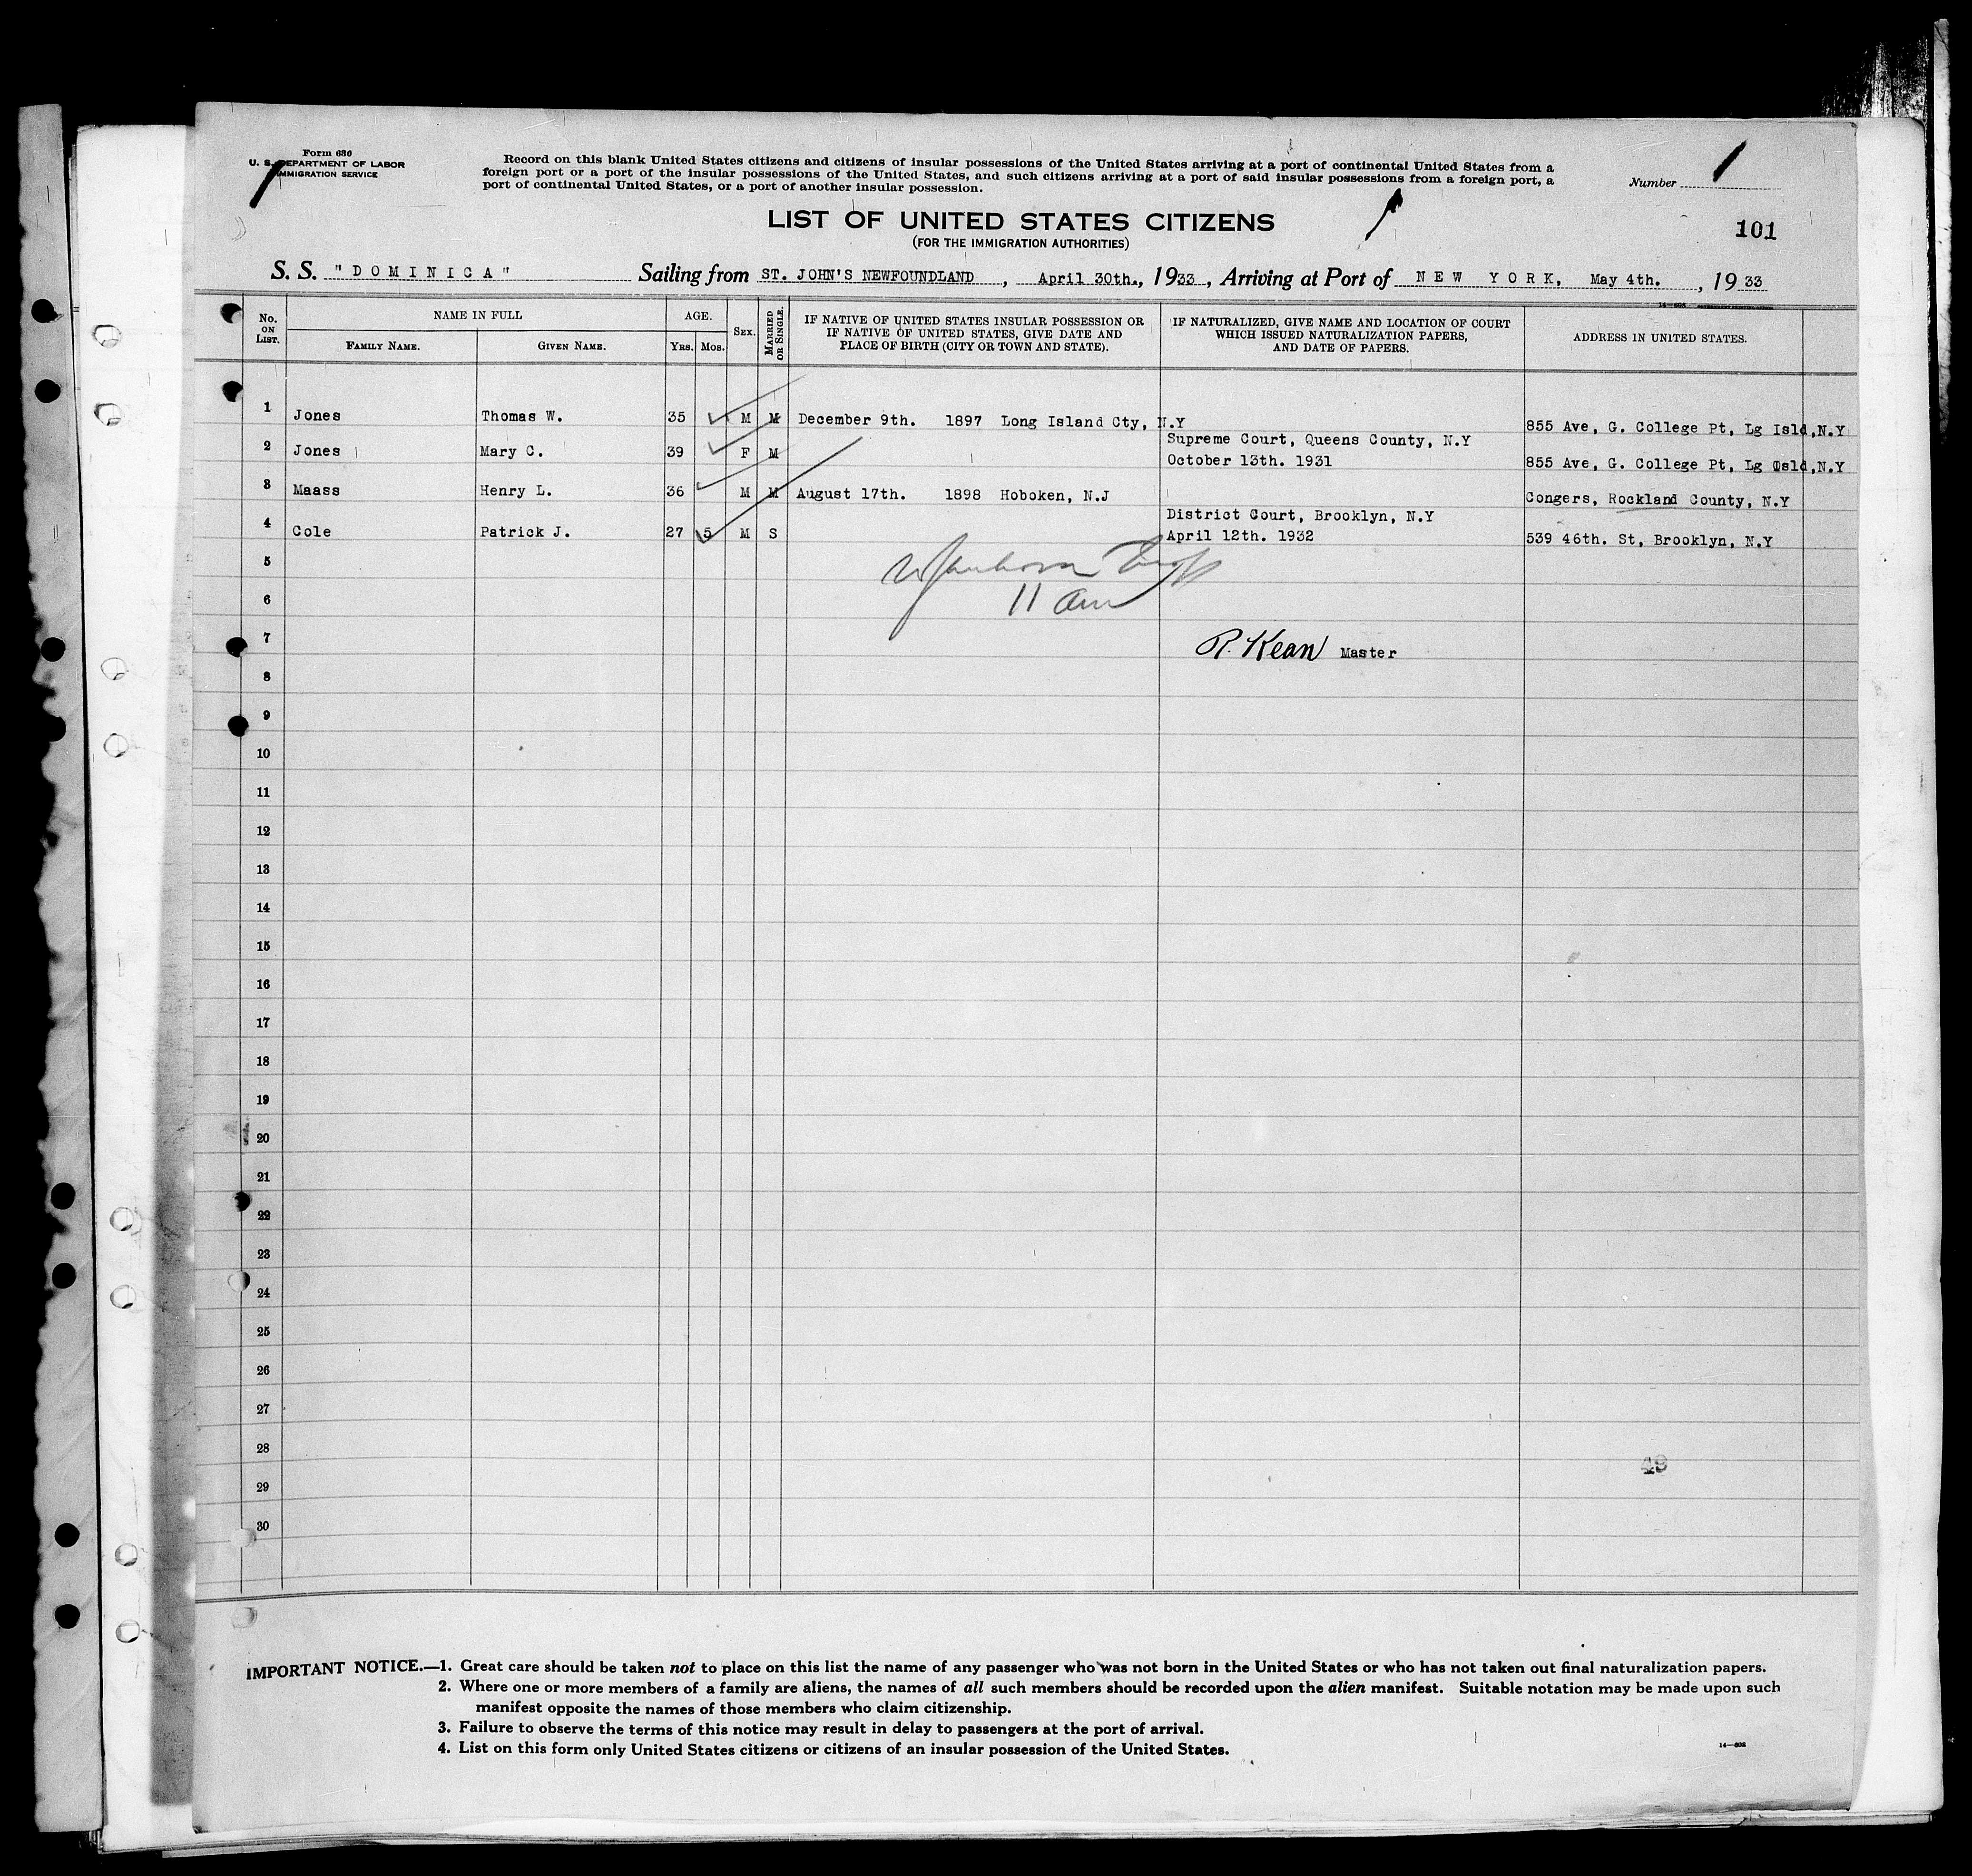 Form 630
U. S. DEPARTMENT OF LABOR
IMMIGRATION SERVICE
Record on this blank United States citizens and citizens of insular possessions of the United States arriving at a port of continental United States from a
foreign port or a port of the insular possessions of the United States, and such citizens arriving at a port of said insular possessions from a foreign port, a
port of continental United States, or a port of another insular possession.
Number 1
LIST OF UNITED STATES CITIZENS
(FOR THE IMMIGRATION AUTHORITIES)
101
S. S. "DOMINICA" Sailing from ST. JOHN'S NEWFOUNDLAND, April 30th., 1933, Arriving at Port of NEW YORK, May 4th., 1933
No. ON LIST. NAME IN FULL AGE. SEX. MARRIED OR SINGLE. IF NATIVE OF UNITED STATES INSULAR POSSESSION OR IF NATIVE OF UNITED STATES, GIVE DATE AND PLACE OF BIRTH (CITY OR TOWN AND STATE). IF NATURALIZED, GIVE NAME AND LOCATION OF COURT WHICH ISSUED NATURALIZATION PAPERS, AND DATE OF PAPERS. ADDRESS IN UNITED STATES.
FAMILY NAME. GIVEN NAME. YRS. MOS.
1 Jones Thomas W. 35 M M December 9th. 1897 Long Island Cty, N.Y 855 Ave, G. College Pt, Lg Isld,N.Y
Supreme Court, Queens County, N.Y
2 Jones Mary C. 39 F M October 13th. 1931 855 Ave, G. College Pt, Lg Isld,N.Y
3 Maass Henry L. 36 M M August 17th. 1898 Hoboken, N.J Congers, Rockland County, N.Y
District Court, Brooklyn, N.Y
4 Cole Patrick J. 27 5 M S April 12th. 1932 539 46th. St, Brooklyn, N.Y
5
6 11 am
7 R. Kean Master
8
9
10
11
12
13
14
15
16
17
18
19
20
21
22
23
24
25
26
27
28
49
29
30
IMPORTANT NOTICE.—1. Great care should be taken not to place on this list the name of any passenger who was not born in the United States or who has not taken out final naturalization papers.
2. Where one or more members of a family are aliens, the names of all such members should be recorded upon the alien manifest. Suitable notation may be made upon such
manifest opposite the names of those members who claim citizenship.
3. Failure to observe the terms of this notice may result in delay to passengers at the port of arrival.
4. List on this form only United States citizens or citizens of an insular possession of the United States.